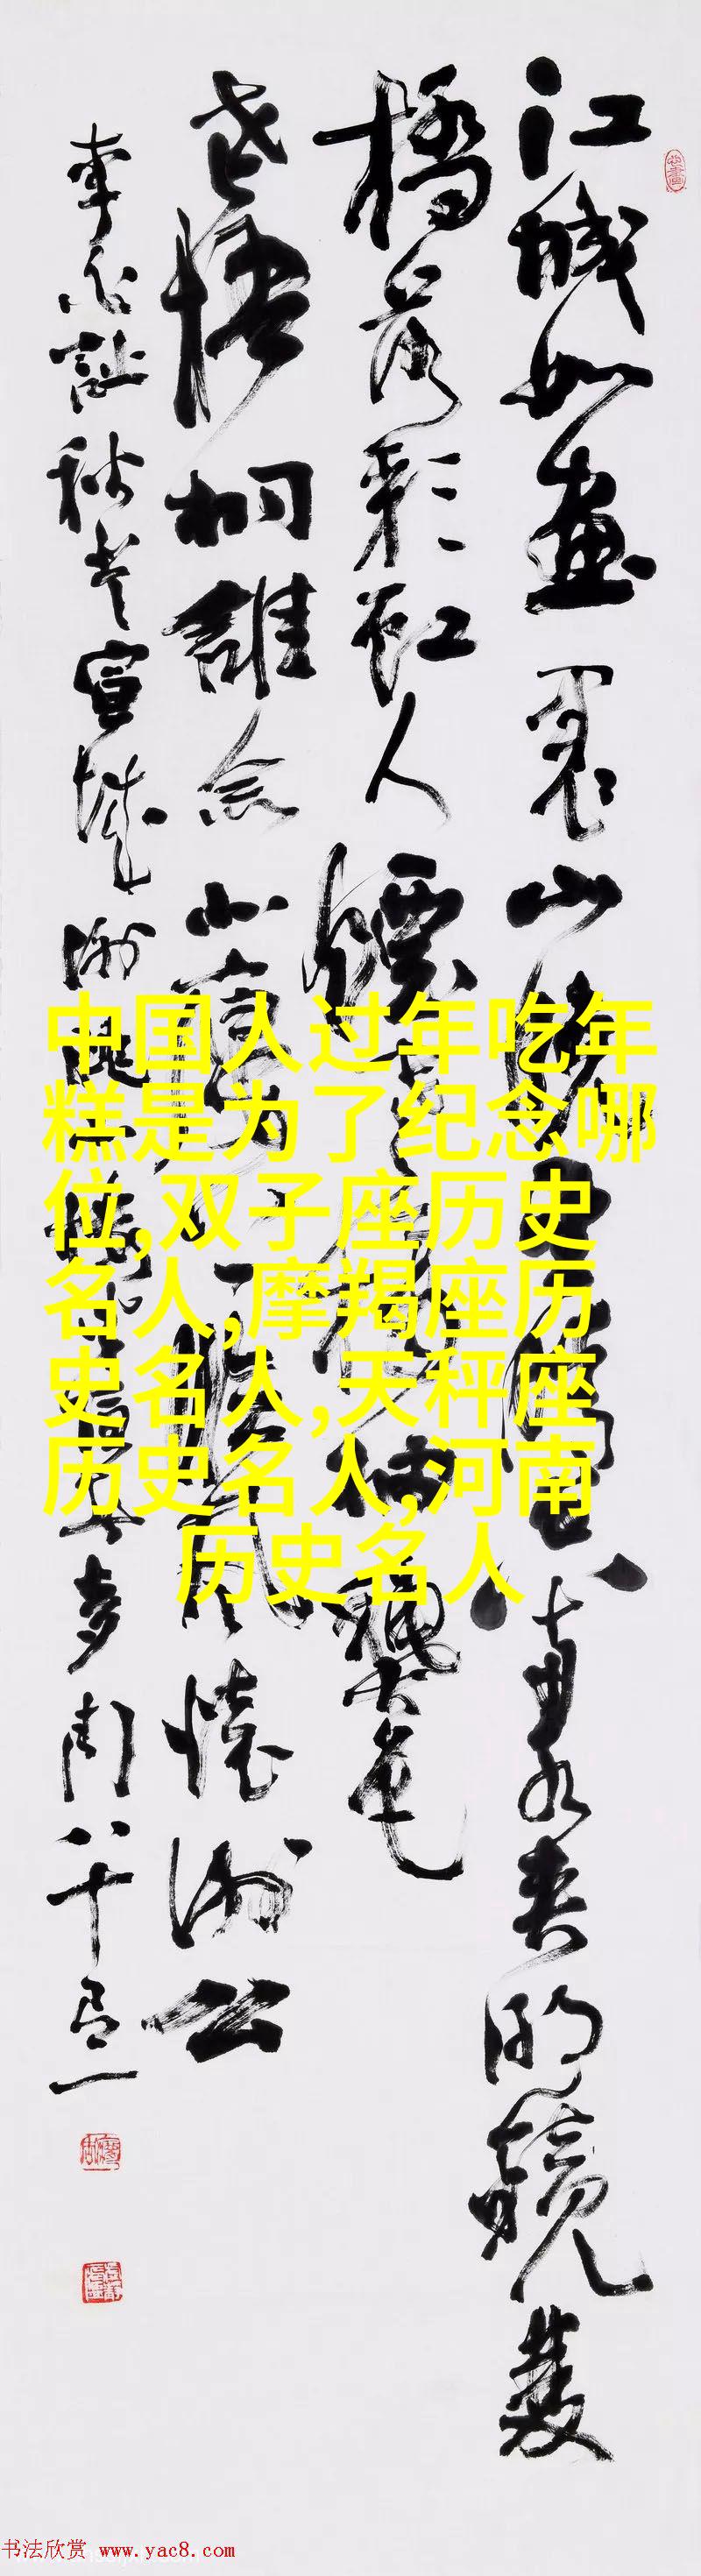 江城如畫裏山曉望晴空兩水夾明鏡雙
橋落彩虹人煙寒橘柚秋色
老梧桐誰念北樓上臨風懷謝公
李白詩秋登宣城謝朓北樓
八十有一
中国人过年吃年
糕是为了纪念哪
位,双子座历史
名人,摩羯座历
史名人,天秤座
历史名人,河南
历史名人
书法欣赏 www.yac8.com